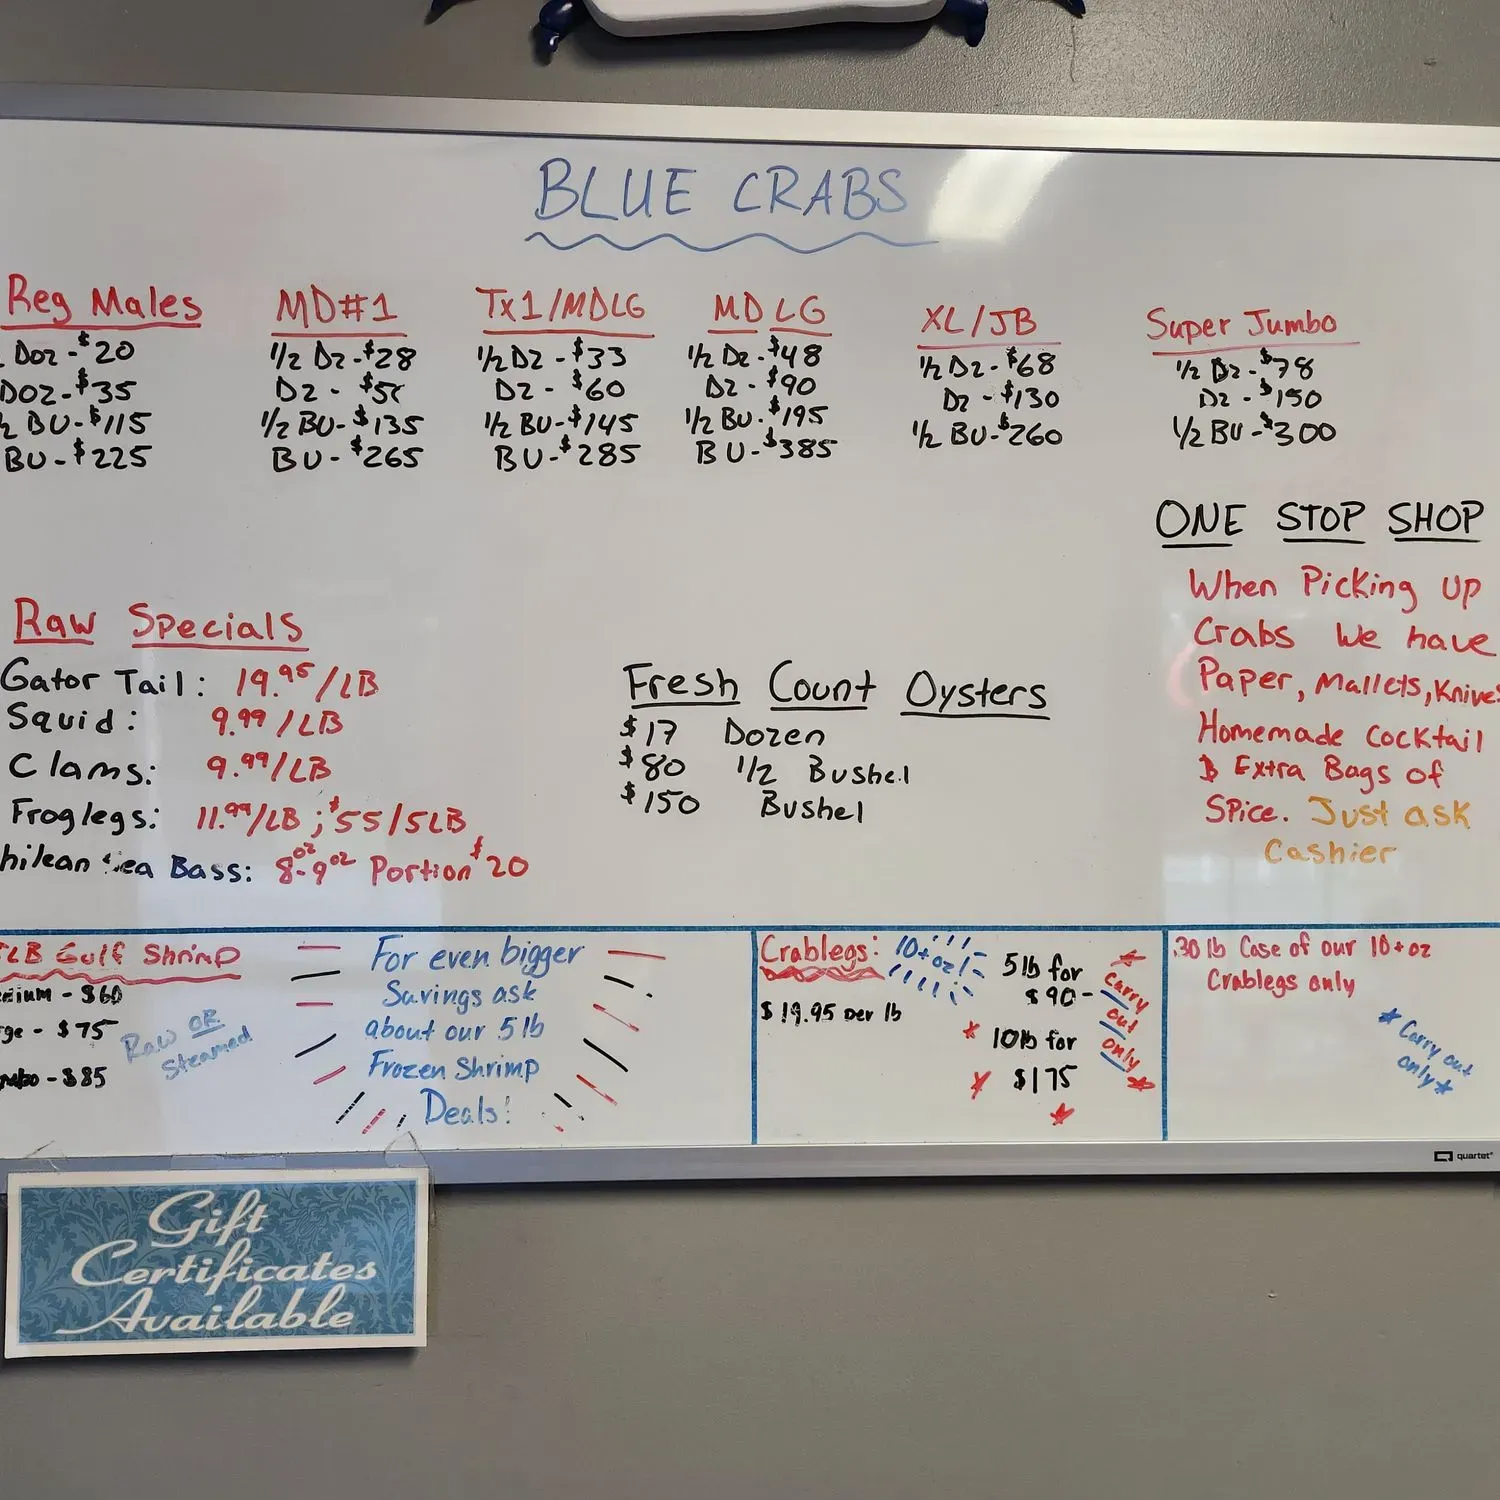 BLUE CRABS
Reg Males
Doz - $20
Doz - $35
½ BU - $115
BU - $225
MD#1
1/2 Dz - $28
Dz -
1/2 BU - $135
BU - $265
Tx1/MDLG
1/2 Dz - $33
Dz - $60
1/2 BU - $145
BU - $285
MD LG
1/2 Dz - $48
Dz - $90
1/2 BU - $195
BU - $385
XL/JB
1/2 Dz - $68
Dz - $130
1/2 BU - $260
Super Jumbo
1/2 Dz - $78
Dz - $150
1/2 BU - $300
ONE STOP SHOP
When Picking up
Crabs We have
Paper, Mallets, Knives
Homemade Cocktail
& Extra Bags of
Spice. Just ask
Cashier
Raw Specials
Gator Tail: 19.95/LB
Squid: 9.99/LB
Clams: 9.99/LB
Froglegs: 11.99/LB; $55/5LB
hilean Sea Bass: 8oz-9oz Portion $20
Fresh Count Oysters
$17 Dozen
$80 1/2 Bushel
$150 Bushel
LB Gulf Shrimp
dium - $60
rge - $75
mbo - $85
Raw OR
Steamed
For even bigger
Savings ask
about our 5 lb
Frozen Shrimp
Deals!
Crablegs: 10+oz!
$19.95 per lb
5 lb for
$90 -
10 lb for
$175
Carry
out
only
30 lb Case of our 10+oz
Crablegs only
Carry out
only
quartet
Gift
Certificates
Available